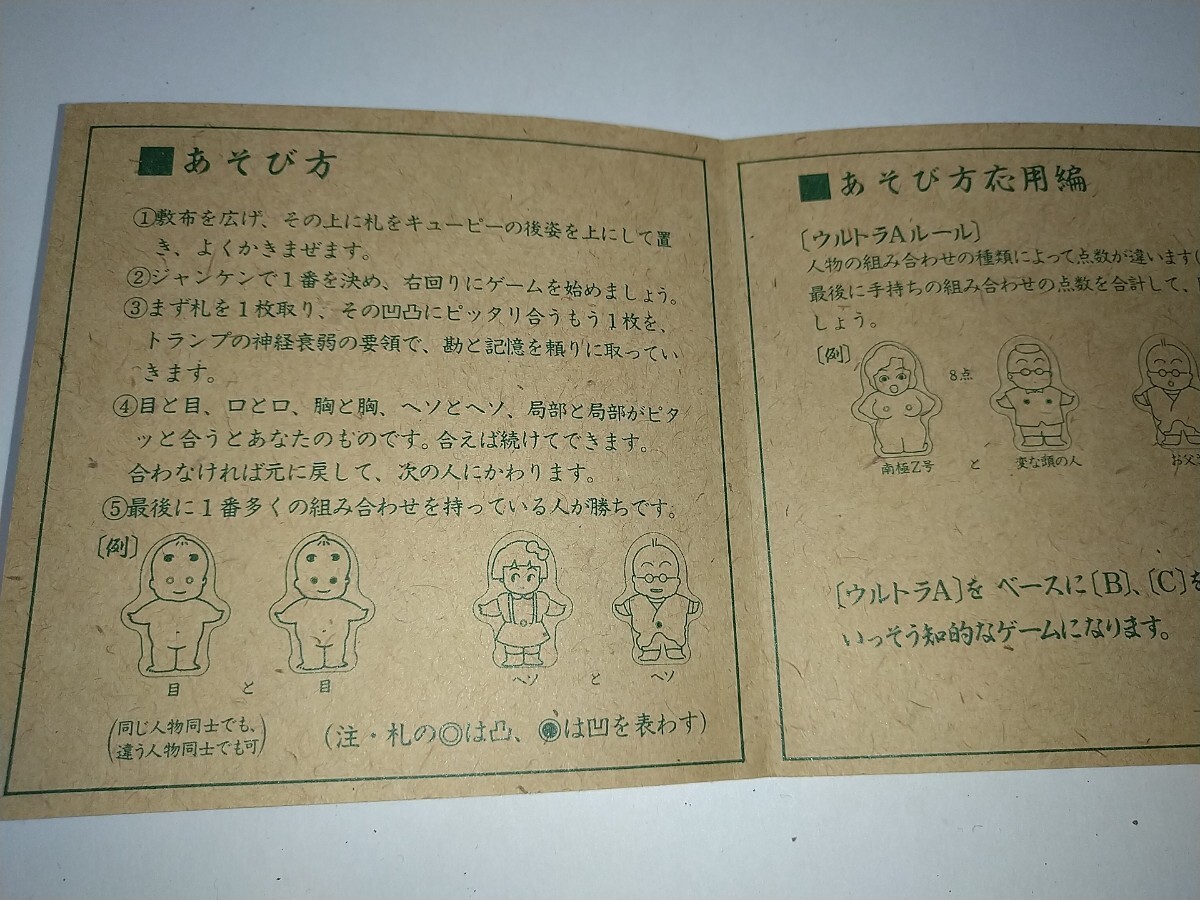 ■あそび方
①敷布を広げ、その上に札をキューピーの後姿を上にして置
き、よくかきまぜます。
②ジャンケンで1番を決め、右回りにゲームを始めましょう。
③まず札を1枚取り、その凹凸にピッタリ合うもう1枚を、
トランプの神経衰弱の要領で、勘と記憶を頼りに取ってい
きます。
④目と目、口と口、胸と胸、ヘソとヘソ、局部と局部がピタ
ッと合うとあなたのものです。合えば続けてできます。
合わなければ元に戻して、次の人にかわります。
⑤最後に1番多くの組み合わせを持っている人が勝ちです。
〔例〕
目 と 目
ヘソ と ヘソ
(同じ人物同士でも、
違う人物同士でも可)
(注・札の◎は凸、◉は凹を表わす)
■あそび方応用編
〔ウルトラAルール〕
人物の組み合わせの種類によって点数が違います(
最後に手持ちの組み合わせの点数を合計して、
しょう。
〔例〕
8点
南極Z号 と 変な頭の人
お父
〔ウルトラA〕を ベースに〔B〕、〔C〕を
いっそう知的なゲームになります。